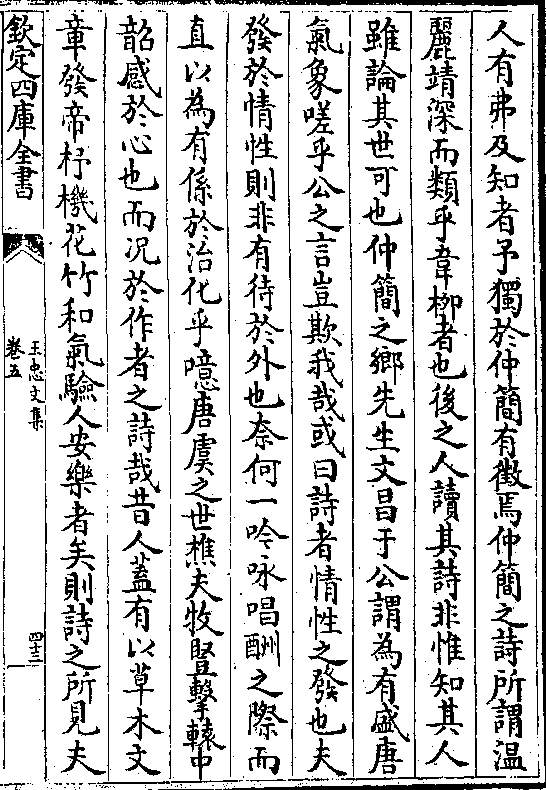 人有弗及知者予獨於仲簡有徵焉仲簡之詩所謂温
麗靖深而類乎韋栁者也後之人讀其詩非惟知其人
雖論其世可也仲簡之鄉先生文昌于公謂為有盛唐
氣象嗟乎公之言豈欺我哉或曰詩者情性之發也夫
發於情性則非有待於外也奈何一吟咏唱酬之際而
直以為有係於治化乎噫唐虞之世樵夫牧豎擊轅中
韶感於心也而況於作者之詩哉昔人蓋有以草木文
章發帝杼機花竹和氣驗人安樂者矣則詩之所見夫
欽定四庫全書
王忠文集
卷五
四十二